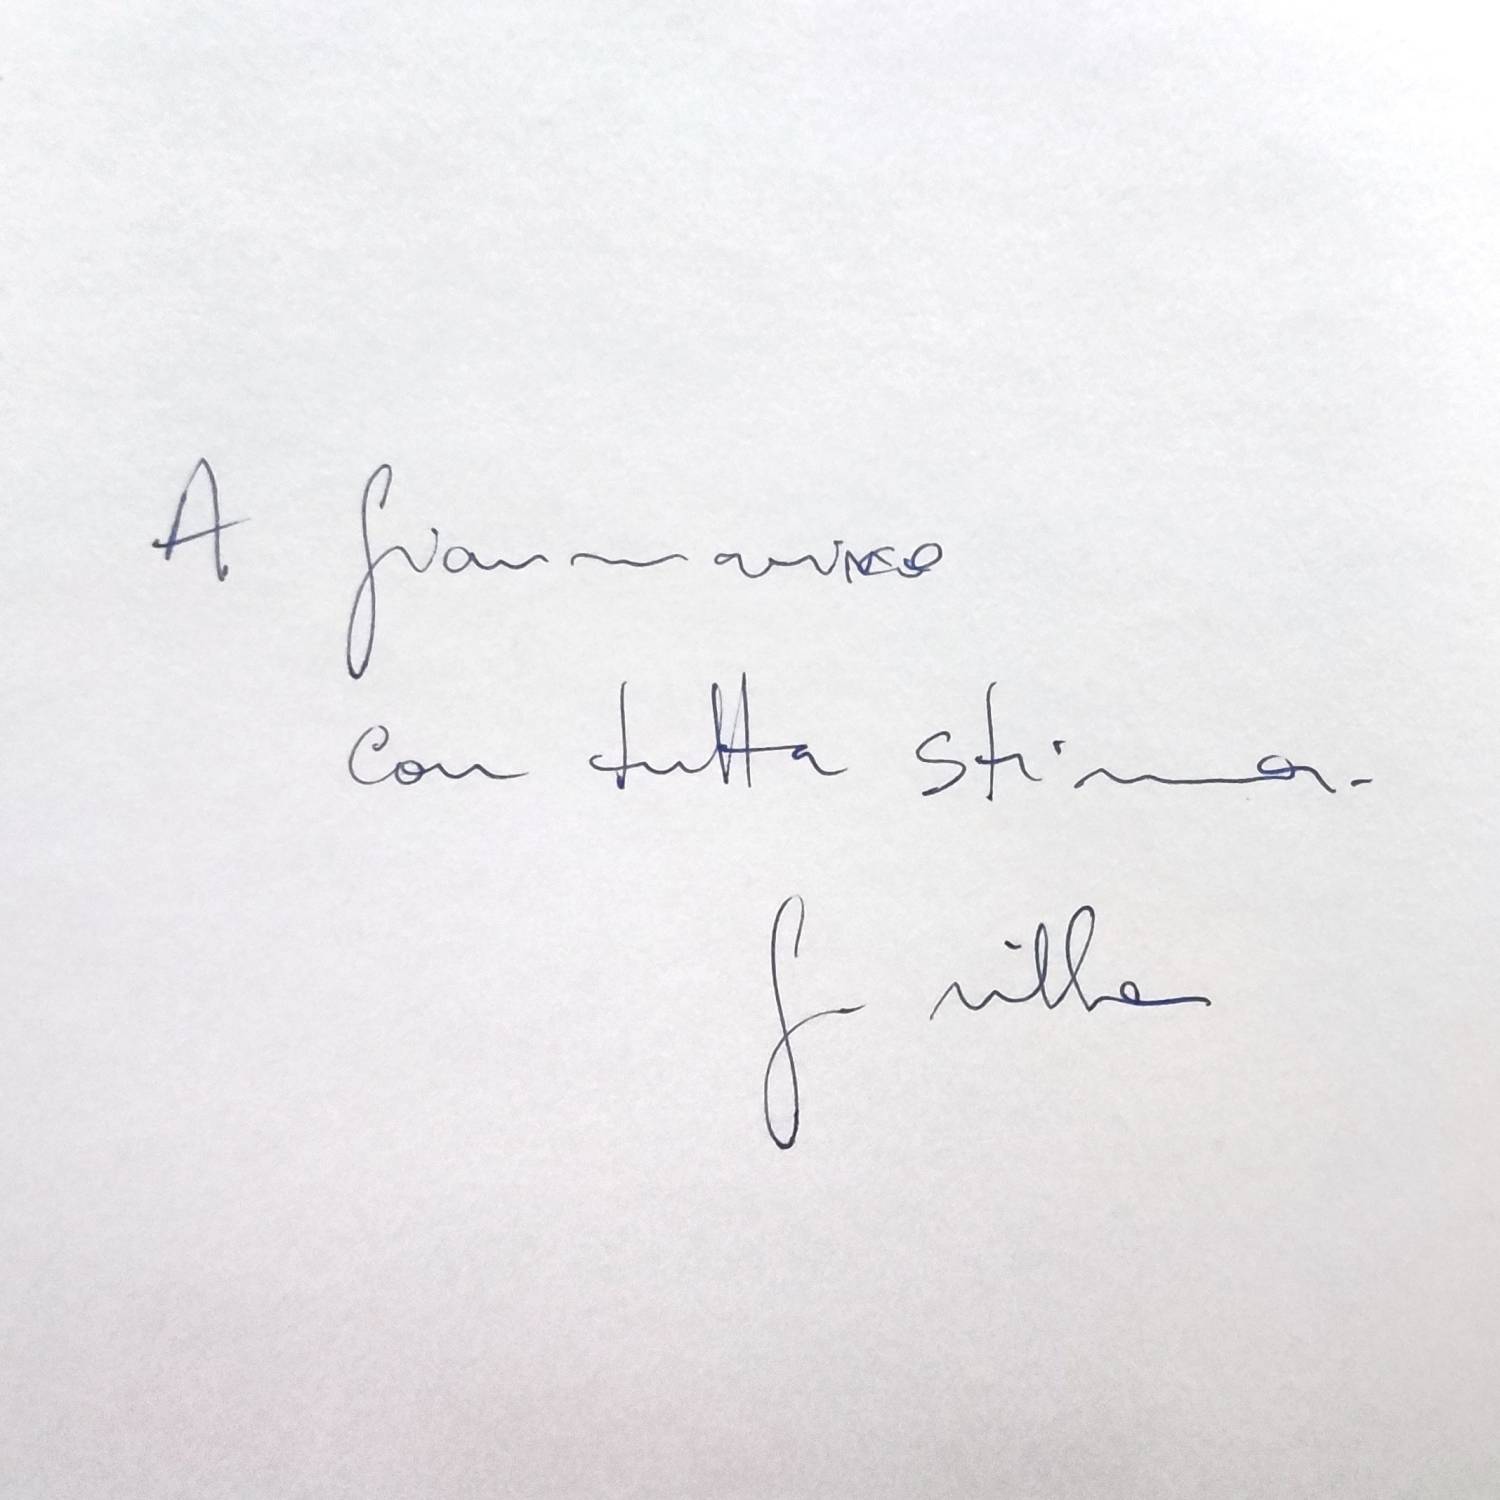 A Gianmarco
con tutta stima.